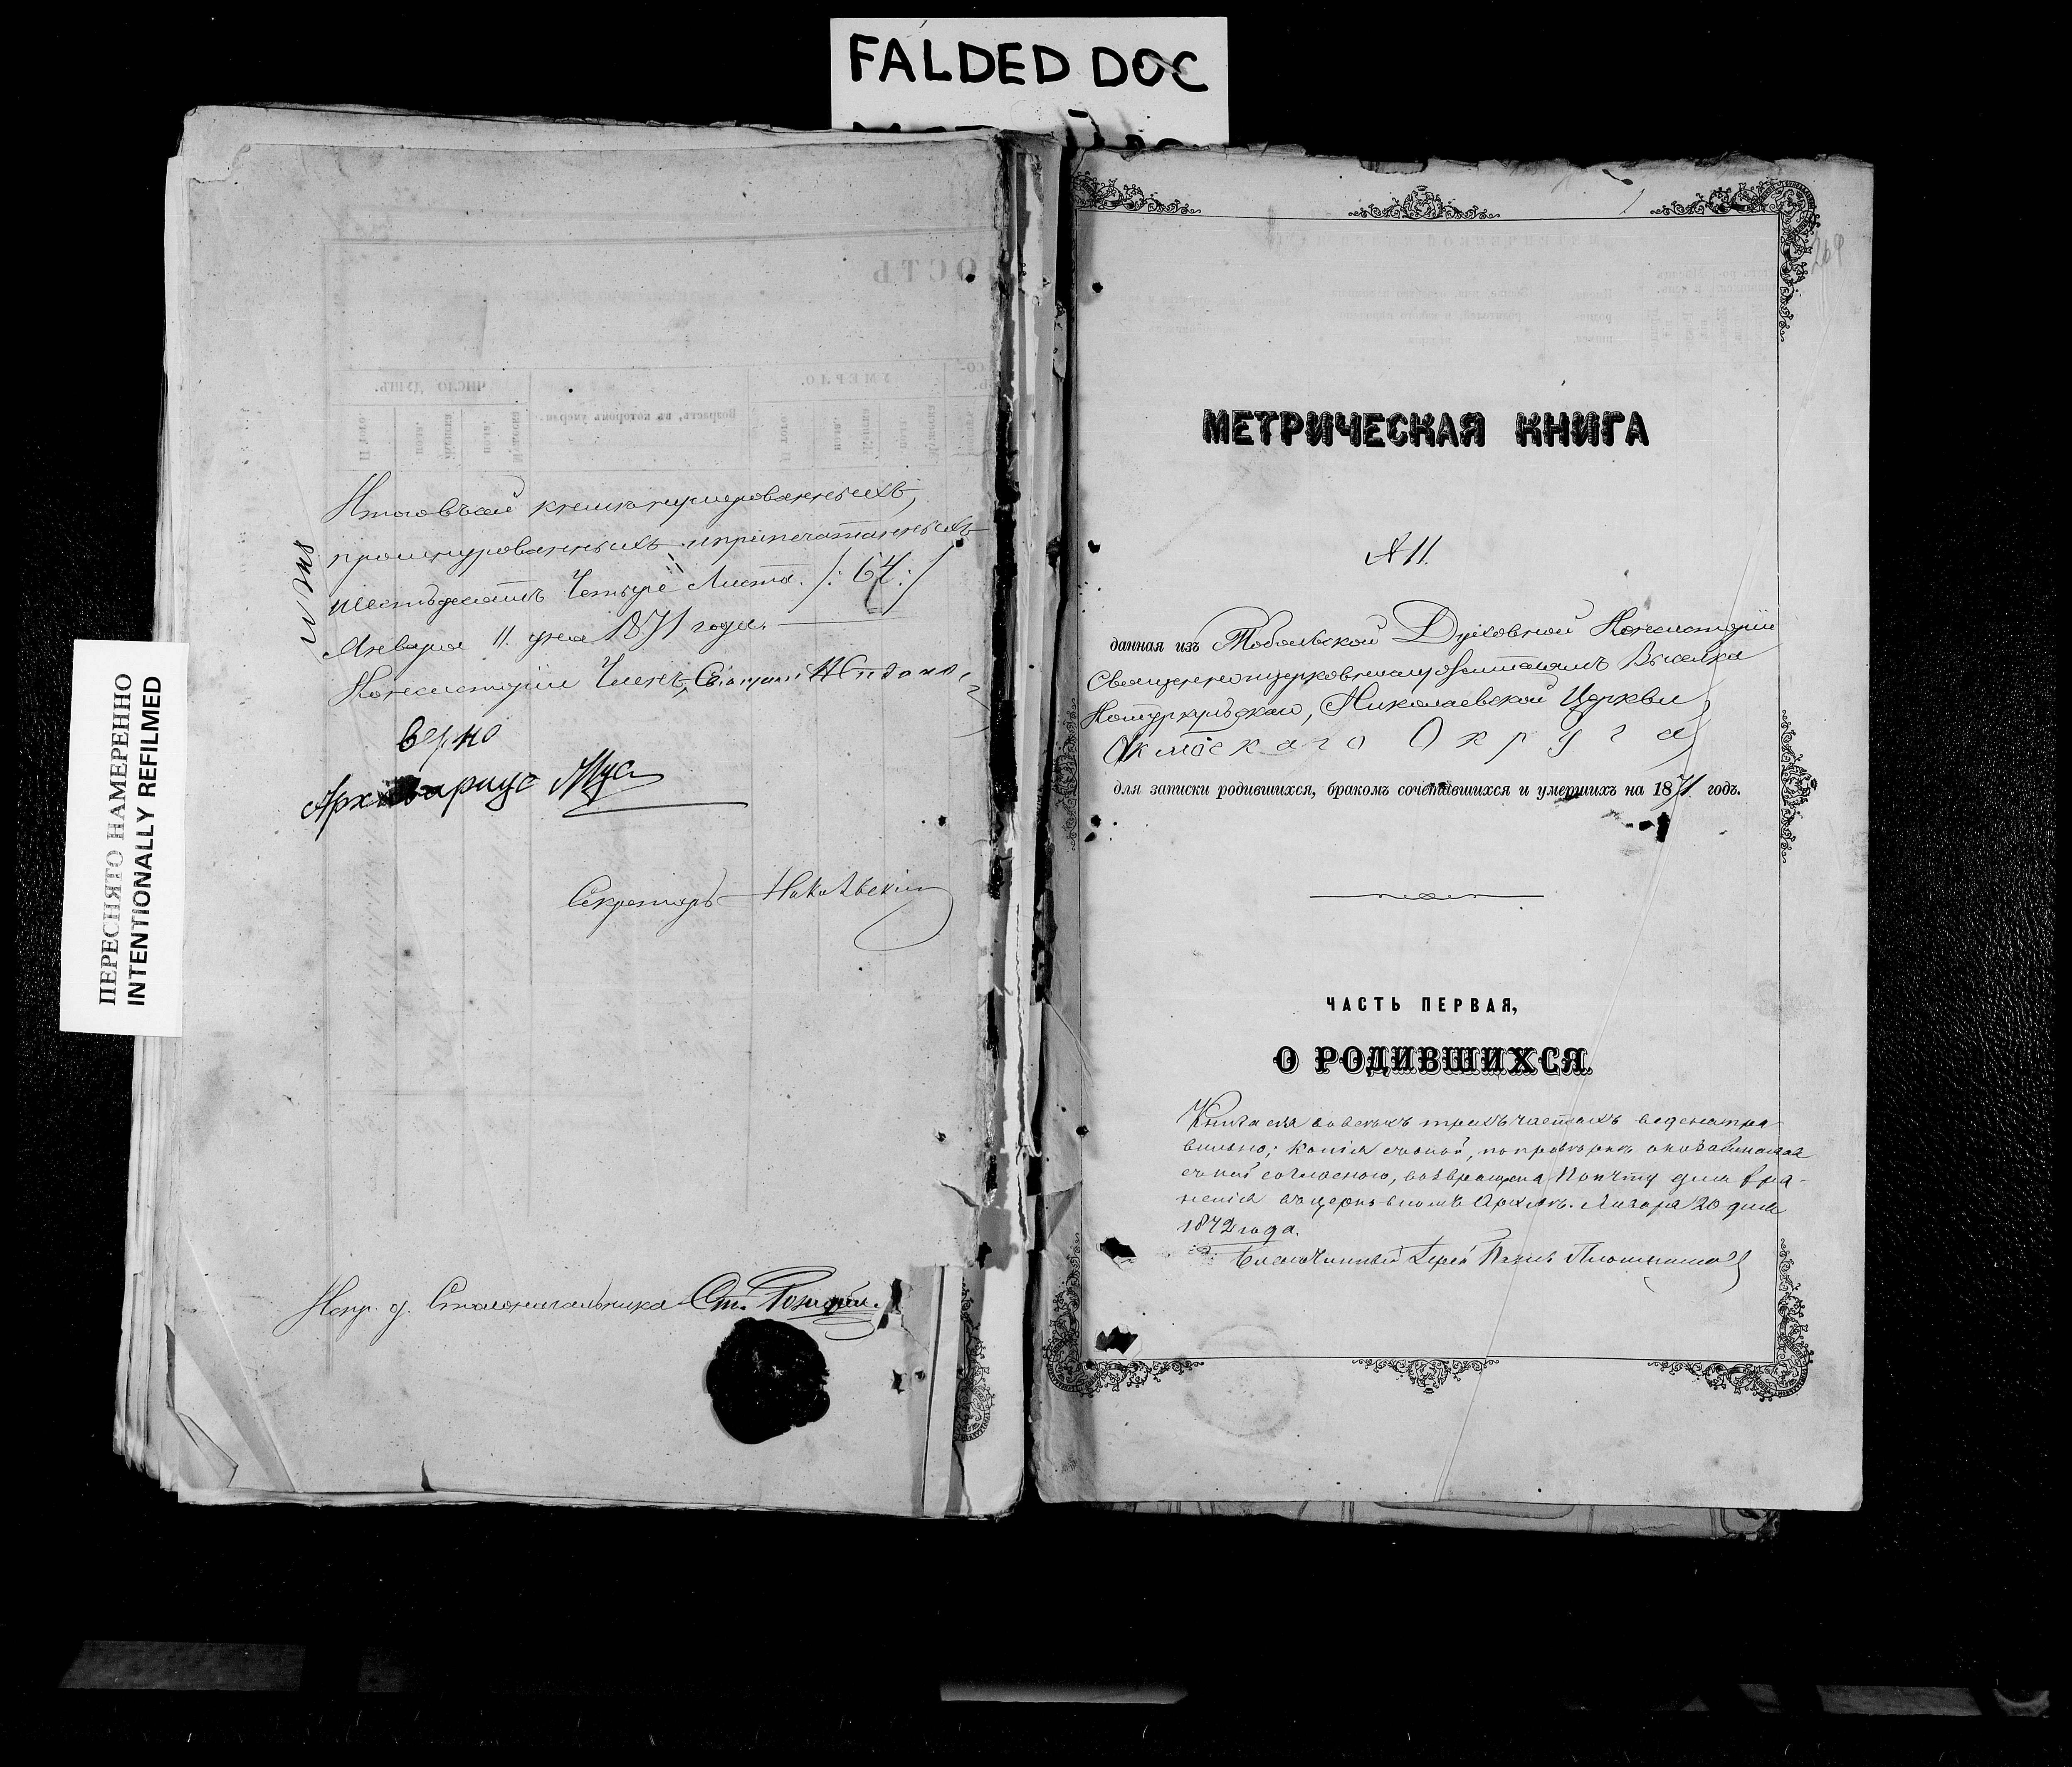 FALDED DOC
ПЕРЕСНЯТО НАМЕРЕННО
INTENTIONALLY REFILMED
Итого въ сей книгѣ нумерованныхъ,
прошнурованныхъ и припечатанныхъ
шестьдесятъ четыре листа. /: 64 :/
Января 11 дня 1871 года.
Консисторіи Членъ, Священ.
Верно
Архивариус
Секретарь
Испр. д. Столоначальника Ст.
269
МЕТРИЧЕСКАЯ КНИГА
№ 11.
данная изъ Тобольской Духовной Консисторіи
Священноцерковнослужителямъ Выселка
Николаевской Церкви
Округа
для записки родившихся, бракомъ сочетавшихся и умершихъ на 1871 годъ.
ЧАСТЬ ПЕРВАЯ,
О РОДИВШИХСЯ
Книга сія во всѣхъ трехъ частяхъ ведена пра-
вильно; копія съ оной, по провѣркѣ оказавшаяся
съ ней согласною, возвращена причту для хра-
ненія въ церковномъ Архивѣ. Января 20 дня
1872 года.
Благочинный Іерей